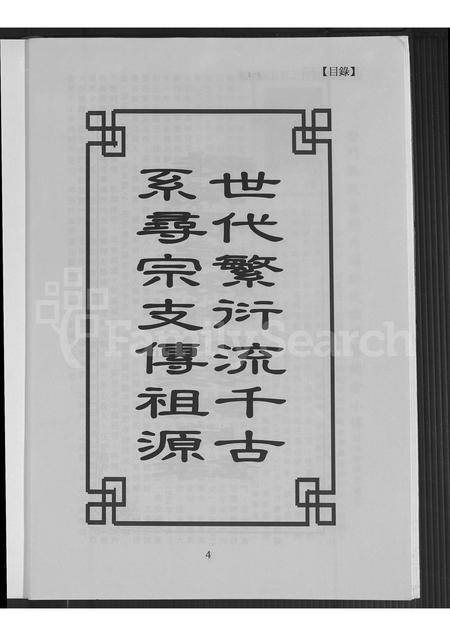 【目錄】
世代繁衍流千古
系尋宗支傳祖源
4
FamilySearch